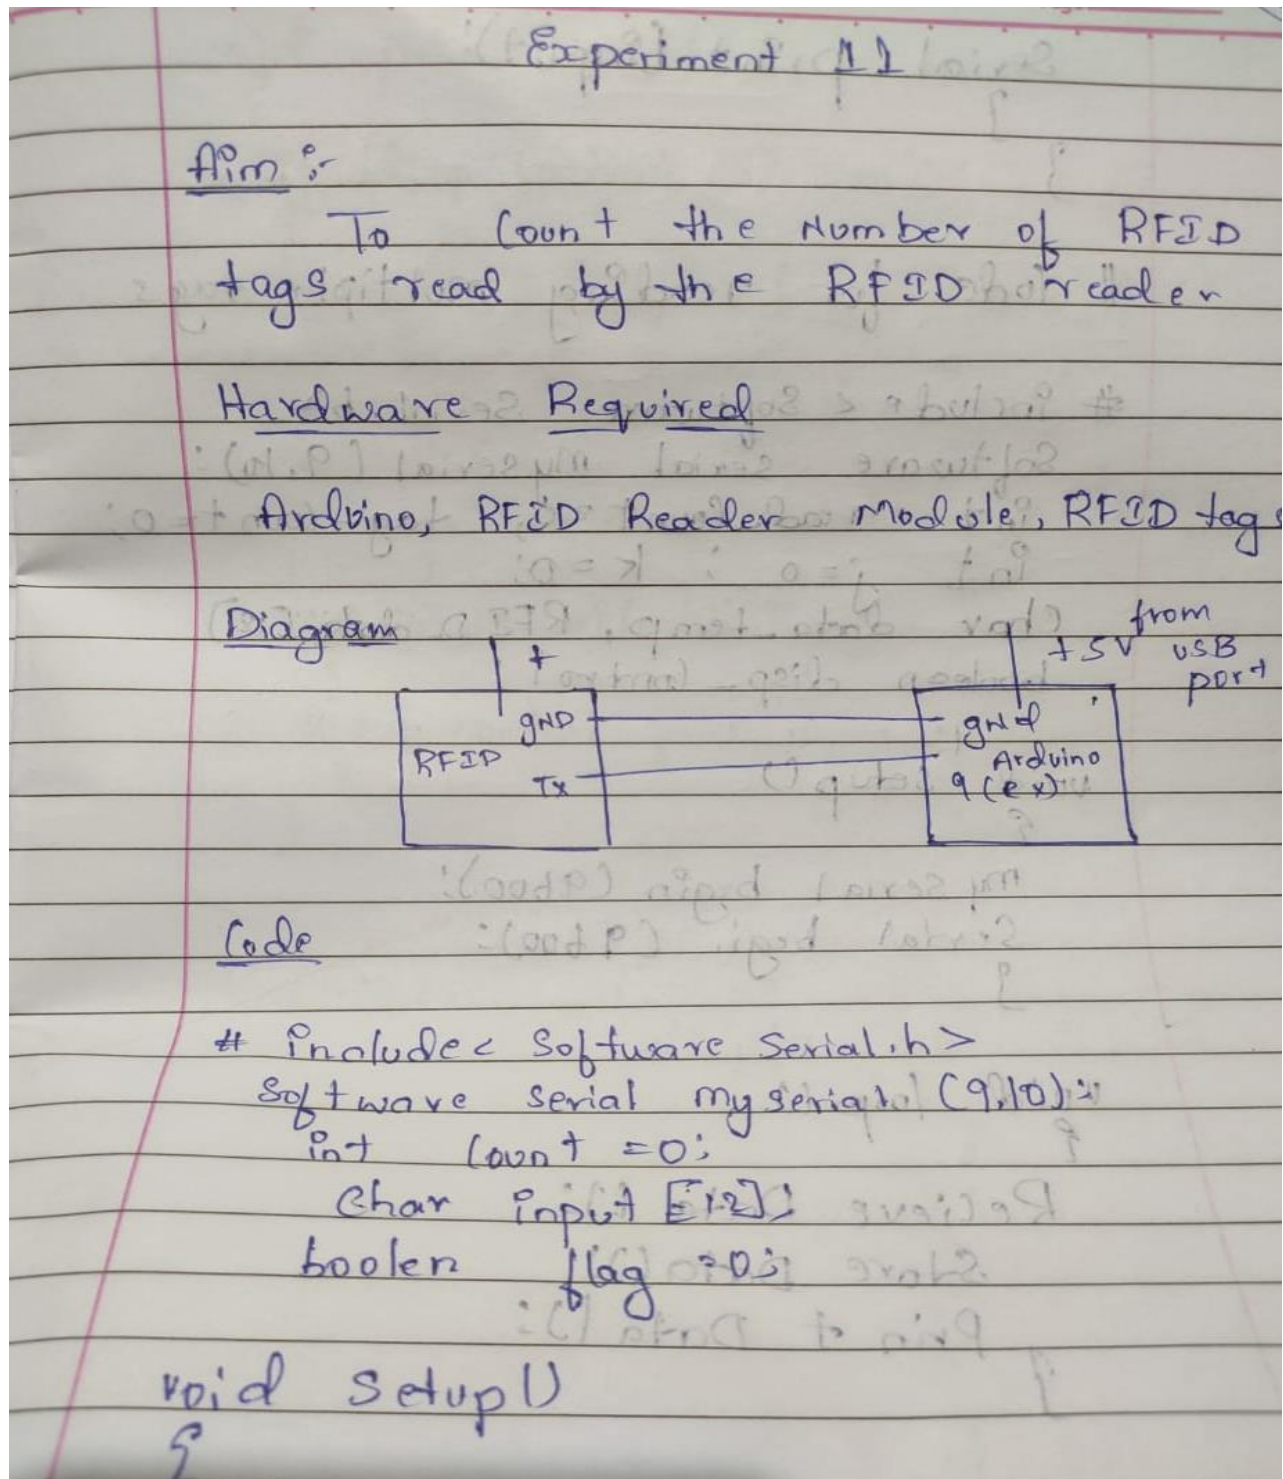 Experiment 11
Aim :-
To Count the Number of RFID
tags read by the RFID reader
Hardware Required
Arduino, RFID Reader Module, RFID tags
Diagram
+
+5V from
USB
port
GND
gnd
RFID
Arduino
Tx
9 (ex)
Code
# include < Software Serial.h>
Software serial myserial (9,10);
int Count =0;
Char input [12];
boolen flag =0;
void Setup()
{